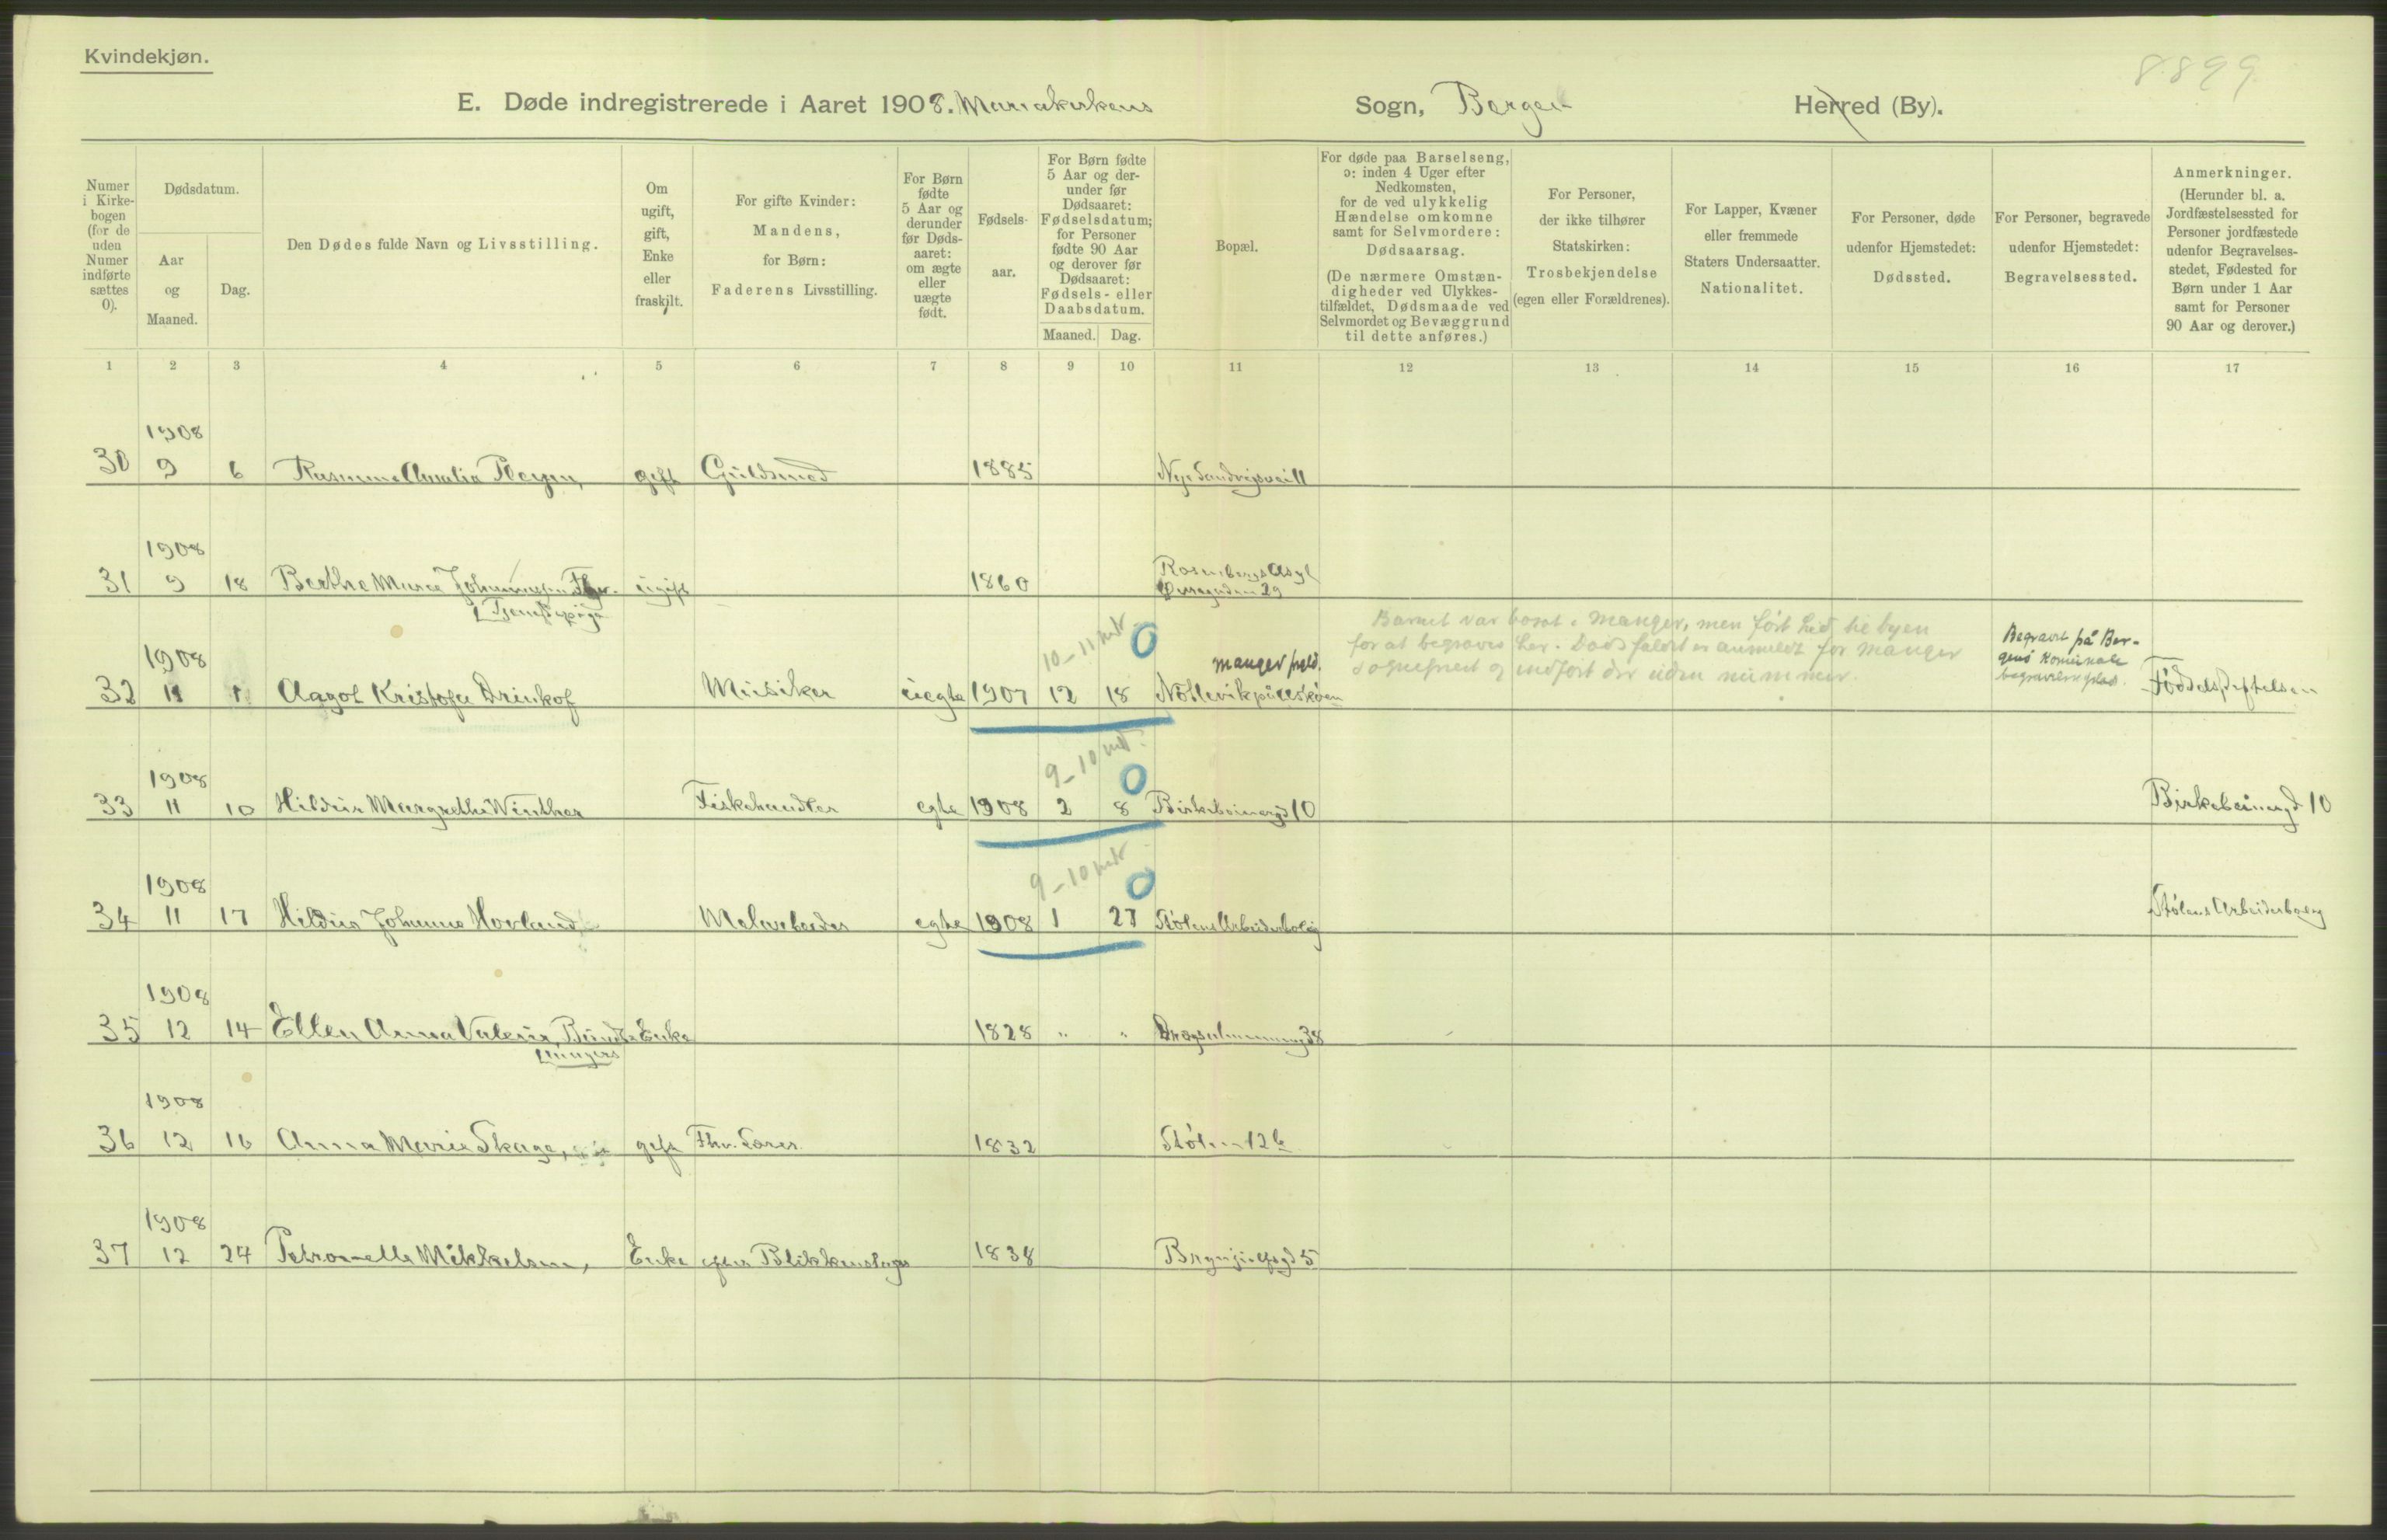 Kvindekjøn.
8899
E. Døde indregistrerede i Aaret 1908. Mariakirkens Sogn, Bergen Herred (By).
Numer i Kirkebogen (for de uden Numer indførte sættes 0).
Dødsdatum.
Aar og Maaned.
Dag.
Den Dødes fulde Navn og Livsstilling.
Om ugift, gift, Enke eller fraskilt.
For gifte Kvinder: Mandens, for Børn: Faderens Livsstilling.
For Børn fødte 5 Aar og derunder før Dødsaaret: om ægte eller uægte født.
Fødselsaar.
For Børn fødte 5 Aar og derunder før Dødsaaret: Fødselsdatum; for Personer fødte 90 Aar og derover før Dødsaaret: Fødsels- eller Daabsdatum.
Maaned. Dag.
Bopæl.
For døde paa Barselseng, ɔ: inden 4 Uger efter Nedkomsten, for de ved ulykkelig Hændelse omkomne samt for Selvmordere: Dødsaarsag. (De nærmere Omstændigheder ved Ulykkestilfældet, Dødsmaade ved Selvmordet og Bevæggrund til dette anføres.)
For Personer, der ikke tilhører Statskirken: Trosbekjendelse (egen eller Forældrenes).
For Lapper, Kvæner eller fremmede Staters Undersaatter. Nationalitet.
For Personer, døde udenfor Hjemstedet: Dødssted.
For Personer, begravede udenfor Hjemstedet: Begravelsessted.
Anmerkninger. (Herunder bl. a. Jordfæstelsessted for Personer jordfæstede udenfor Begravelsesstedet, Fødested for Børn under 1 Aar samt for Personer 90 Aar og derover.)
1 2 3 4 5 6 7 8 9 10 11 12 13 14 15 16 17
1908
30 9 6 Rasmine Amalia gift Guldsmed 1885 Nye Sandvigsvei 11
1908
31 9 18 Berthe Johannesen ugift 1860 Rosenbergs Asyl
Tjenestepige 29
10-11 mdr. 0
Barnet var bosat i Manger, men ført hid til byen
for at begraves her. Dødsfaldet er anmeldt for Manger
sognepræst og indført der uden nummer.
1908
32 11 1 Aagot Kristofa Drinkof Musiker uegte 1907 12 18 Manger præd.
Begravet på Bergens Komunale begravelsesplads. Fødselsstiftelsen
9-10 mdr. 0
1908
33 11 10 Hildur Margrethe Winther Fiskehandler egte 1908 2 8 Birkebeinergd 10 Birkebeinergd 10
9-10 mdr. 0
1908
34 11 17 Hildur Johanne Hovland egte 1908 1 27 Stølens Arbeiderbolig Stølens Arbeiderbolig
1908
35 12 14 Ellen Anna Valeria Enke 1828 " " 38
1908
36 12 16 Anna Marie Skage, gift Fhv. Lærer 1832 Stølen 12b
1908
37 12 24 Petronelle Mikkelsen, Enke efter Blikkenslager 1838 5